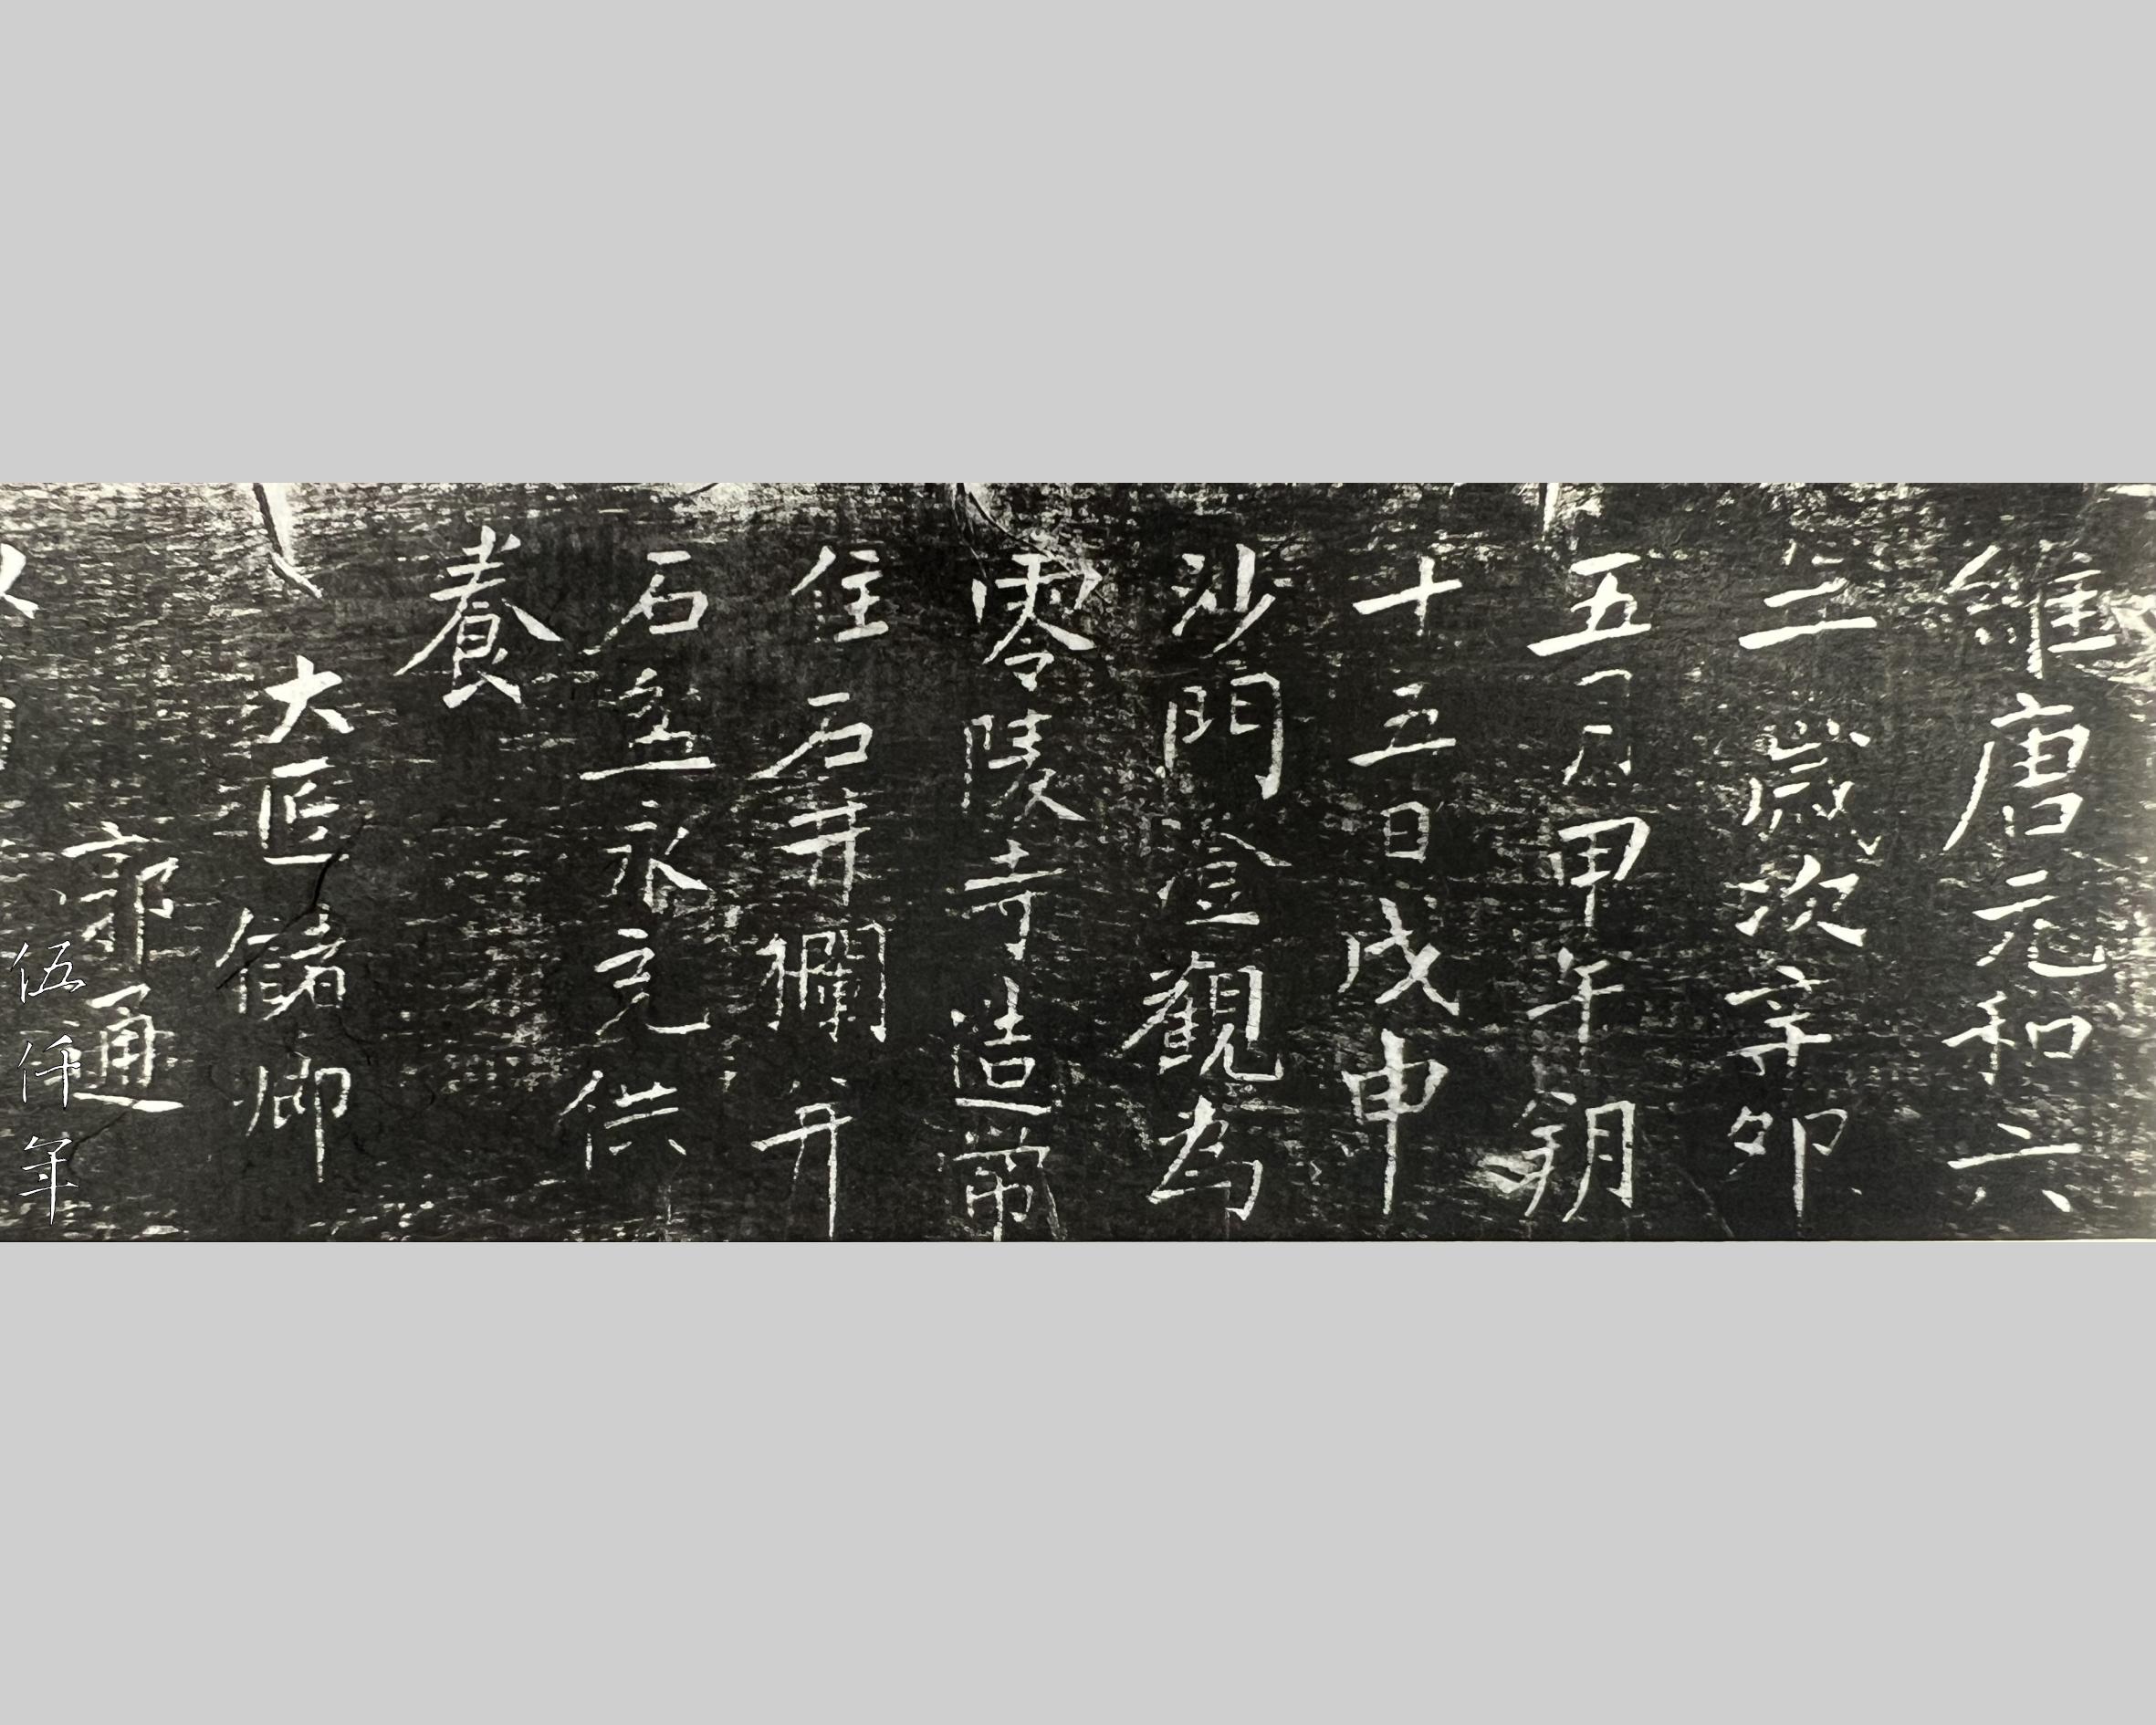 維唐元和六
年歲次辛卯
五月甲午朔
十五日戊申
沙門澄觀為
零陵寺造常
住石井欄并
石盆永充供
養
大匠儲卿
郭通
伍仟年